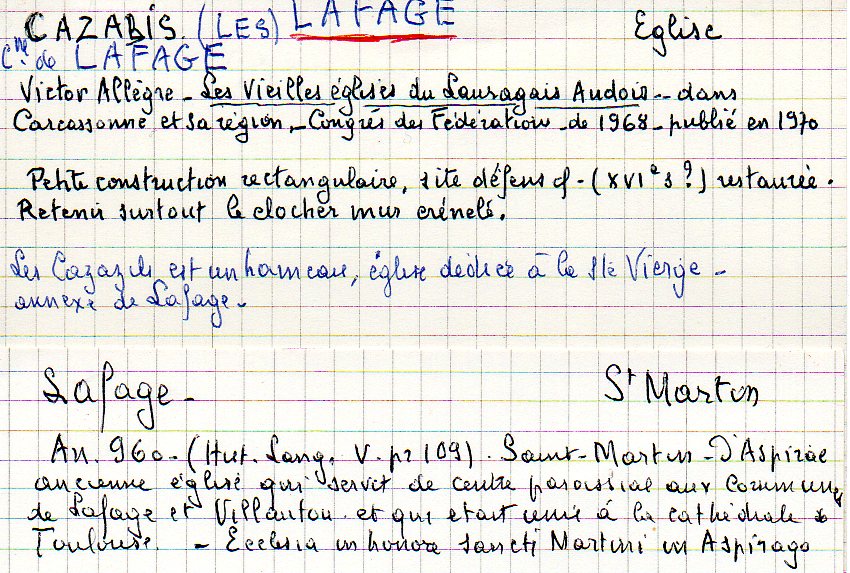 CAZABIS. (LES) LAFAGE Eglise
Cne. de LAFAGE
Victor Allègre - Les Vieilles églises du Lauragais Audois - dans
Carcassonne et sa région, - Congrés des Fédération - de 1968 - publié en 1970
Petite construction rectangulaire, site défens cf - (XVIe s ?) restaurée.
Retenir surtout le clocher mur crénelé.
Les Cazazils est un hameau, église dédiée à la Ste Vierge -
annexe de Lafage -
Lafage - St Martin
An. 960 - (Hist. Lang. V. pr 109). Saint-Martin-D'Aspirac
ancienne église qui servit de centre paroissial aux communes
de Lafage et Villautou et qui était unie à la cathédrale de
Toulouse. - Ecclesia in honore sancti Martini in Aspirago